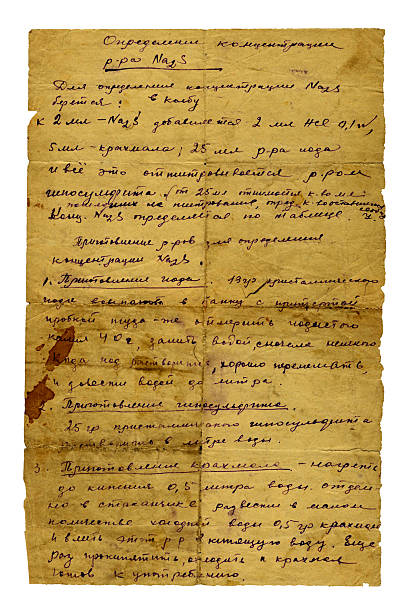 Определение концентрации
р-ра Na₂S
Для определения концентрации Na₂S
берется: в колбу
к 2 мл – Na₂S добавляется 2 мл HCl 0,1 н,
5 мл – крахмала; 25 мл р-ра иода
и всё это оттитровывается р-ром
гипосульфита, от 25 мл отнимается к-во мл
на титрование,
конц. Na₂S определяется по таблице.
Приготовление р-ров для определения
концентрации Na₂S.
1. Приготовление иода. 13 гр кристаллического
иода в банку с притертой
пробкой туда-же отмерить иодистого
калия 40 г, залить водой, сначала немного.
Когда иод растворится, хорошо перемешать
и довести водой до литра.
2. Приготовление гипосульфита.
25 гр кристаллического гипосульфита
растворить в литре воды.
3. Приготовление крахмала – нагреть
до кипения 0,5 литра воды. отдель
но в стаканчике развести в малом
количестве холодной воды 0,5 гр крахмала
и влить этот р-р в кипящую воду. Еще
раз прокипятить, охладить и крахмал
готов к употреблению.